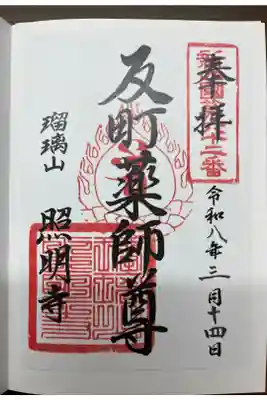 奉拝
令和八年三月十四日
反町薬師尊
瑠璃山
照明寺